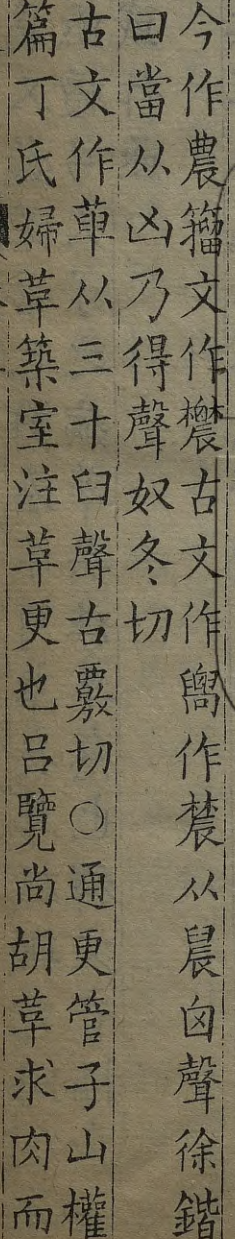 今作農籀文作䢉古文作𦦥作莀从䢅囟聲徐鍇
曰當从凶乃得聲奴冬切
古文作𠦶从三十𦥑聲古覈切○通更管子山權
篇丁氏婦革築室注革更也呂覽尚胡革求肉而